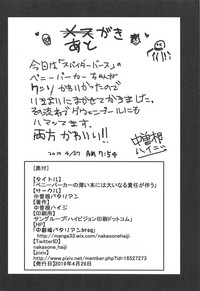 あとがき
今回は「スパイダーバース」の
ペニーパーカーちゃんが
クッソかわいかったので
いきおいにまかせてかきました。
その流れでグウェンプールにも
ハマってます。
両方かわいい!!
2019 4/27 AM 7:54
中曽根
ハイジ
【奥付】
【タイトル】
「ペニーパーカーの薄い本には大いなる責任が伴う」
【サークル】
中曽根バタリアン
【発行者】
中曽根ハイジ
【印刷所】
サングループ「ハイビジョン印刷ドットコム」
http://manga33.wix.com/nakasonehaji
【TwitterID】
nakasone_haiji
【pixiv】
http://www.pixiv.net/member.php?id=16527273
【発行日】2019年4月29日